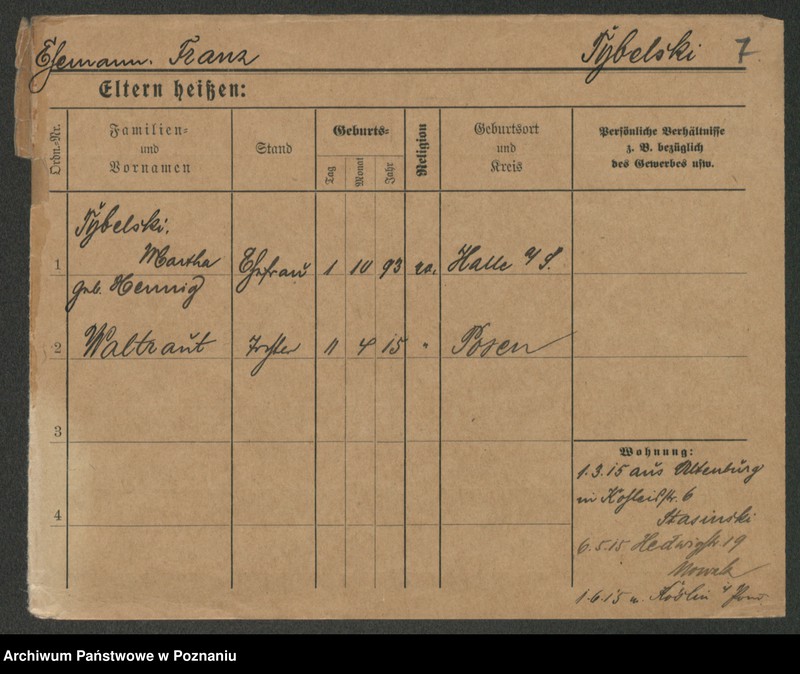 Ehemann. Franz Tybelski 7
Eltern heißen:
Ordn.-Nr.
Familien-
und
Vornamen
Stand
Geburts-
Tag
Monat
Jahr
Religion
Geburtsort
und
Kreis
Persönliche Verhältnisse
z. B. bezüglich
des Gewerbes usw.
Tybelski.
1 Martha Ehefrau 1 10 93 ev. Halle a/S.
geb. Hennig
2 Waltraut Tochter 11 4 15 " Posen
3
4
Wohnung:
1.3.15 aus Altenburg
in 6
Stasinski
6.5.15 Hedwigstr. 19
Nowak
1.6.15 n. Köslin i/Pom.